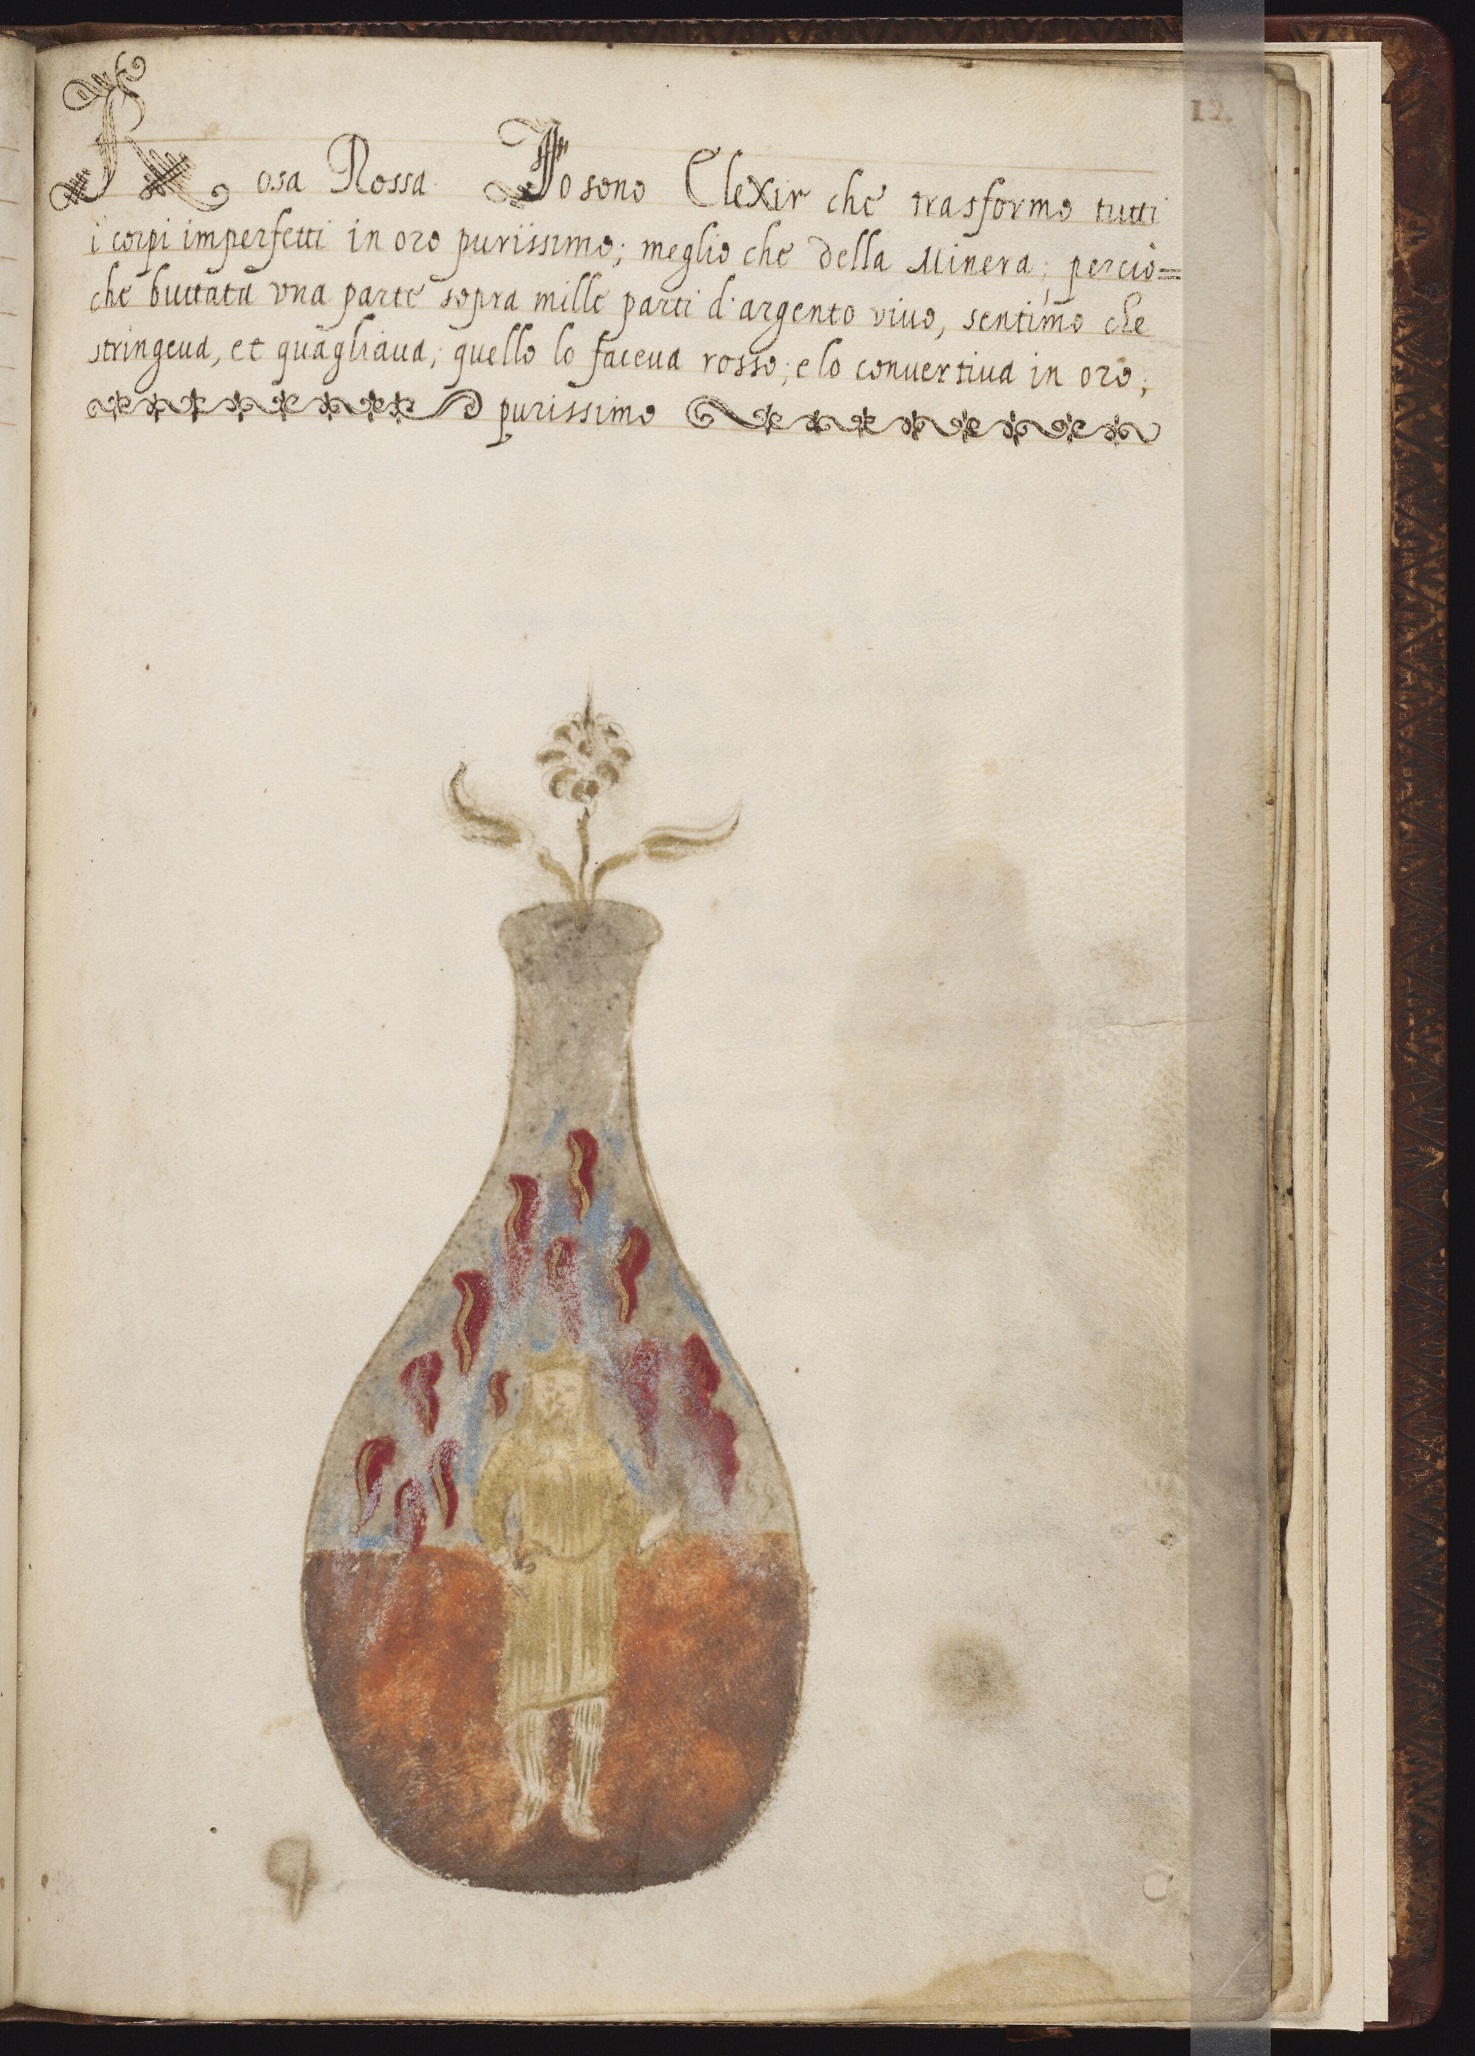 12.
Rosa Rossa. Io sono Elexir che trasformo tutti
i corpi imperfetti in oro purissimo; meglio che della Minera; perciò=
che buttata una parte sopra mille parti d'argento vivo, sentimo che
stringeva, et quagliava; quello lo faceva rosso; e lo convertiva in oro;
purissimo